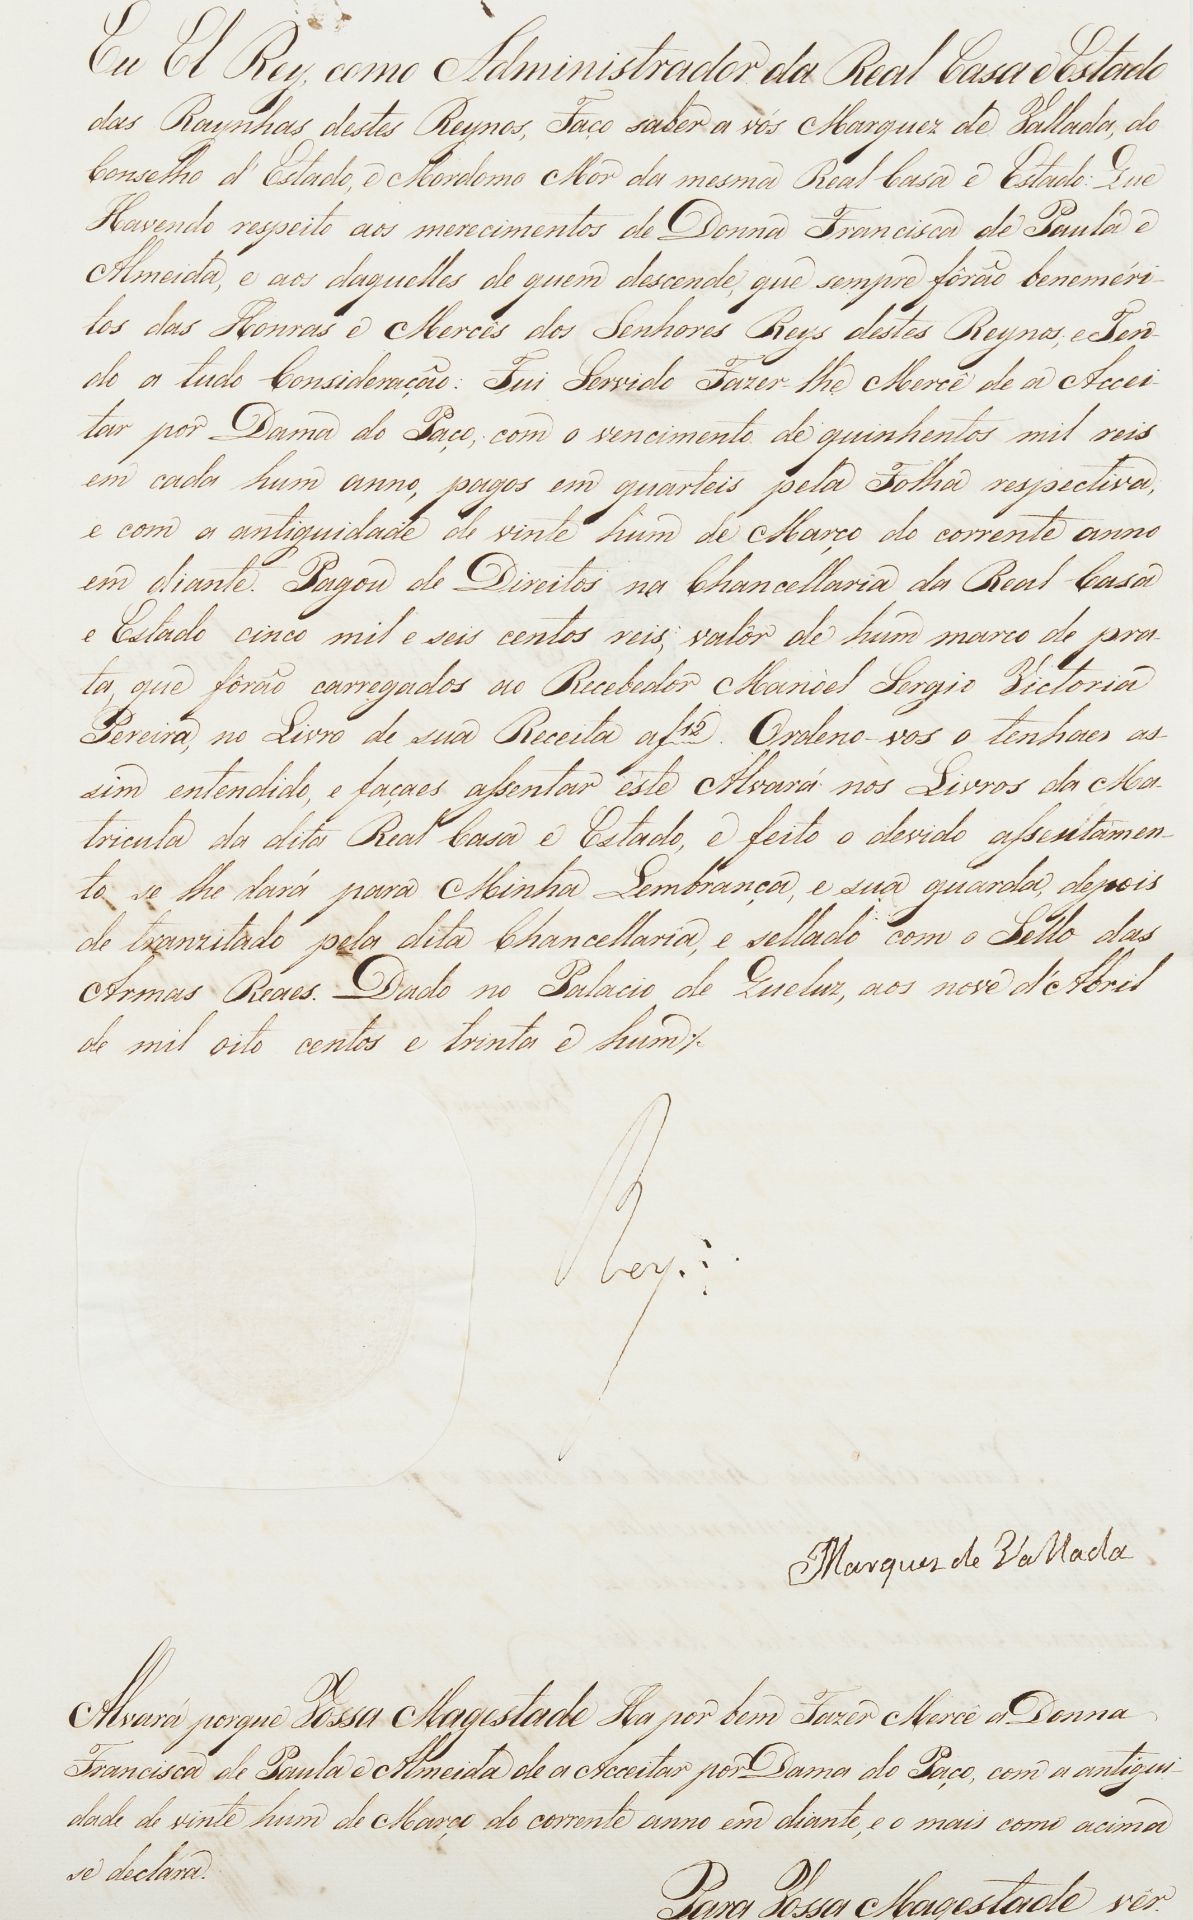 Eu El Rey, como Administrador da Real Casa e Estado
das Raynhas destes Reynos, Faço saber a vós Marquez de Vallada, do
Conselho d'Estado, e Mordomo Mór da mesma Real Casa e Estado: Que
Havendo respeito aos merecimentos de Donna Francisca de Paula e
Almeida, e aos daquelles de quem descende, que sempre fôrão beneméri-
tos das Honras e Mercês dos Senhores Reys destes Reynos; e Ten-
do a tudo Consideração: Fui Servido Fazer-lhe Mercê de a Accei-
tar por Dama do Paço, com o vencimento de quinhentos mil reis
em cada hum anno, pagos em quarteis pela Folha respectiva,
e com a antiguidade de vinte hum de Março do corrente anno
em diante. Pagou de Direitos na Chancellaria da Real Casa
e Estado cinco mil e seis centos reis, valôr de hum marco de pra-
ta, que fôrão carregados ao Recebedor Manoel Sergio Victoria
Pereira, no Livro de sua Receita a f 12. Ordeno-vos o tenhaes as-
sim entendido, e façaes assentar éste Alvará nos Livros da Ma-
tricula da dita Real Casa e Estado, e feito o devido assentamen-
to se lhe dará para Minha Lembrança, e sua guarda, depois
de tranzitado pela dita Chancellaria, e sellado com o Sello das
Armas Reaes. Dado no Palacio de Queluz, aos nove d'Abril
de mil oito centos e trinta e hum
Rey
Marquez de Vallada
Alvará porque Vossa Magestade Ha por bem Fazer Mercê a Donna
Francisca de Paula e Almeida de a Acceitar por Dama do Paço, com a antigui-
dade de vinte hum de Março do corrente anno em diante, e o mais como acima
se declára.
Para Vossa Magestade vêr.